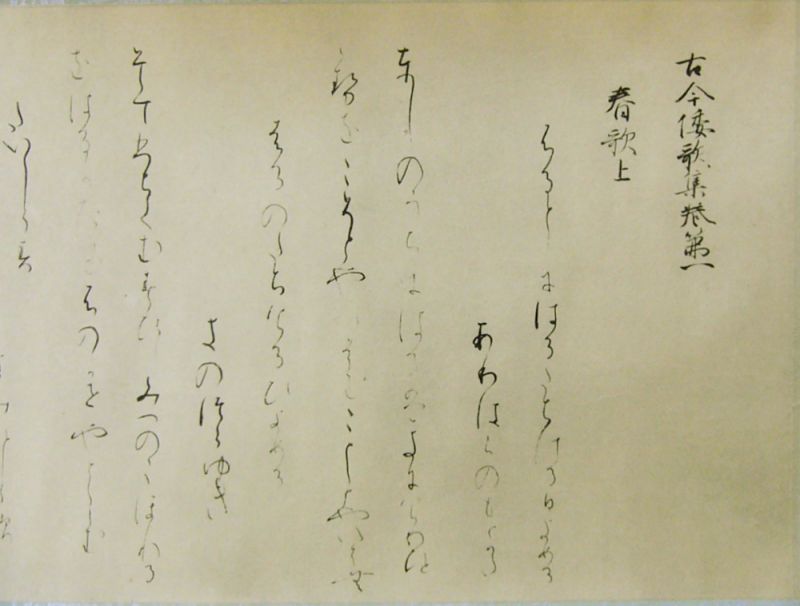 古今倭歌集巻第一
春歌上
ふるとしにはるたちける日よめる
ありはらのもとかた
としのうちにはるはきにけりひと
とせをこそとやいはむことしとやいはむ
はるのたちけるひよめる
きのつらゆき
そてひちてむすひしみつのこほれる
をはるたつけふのかせやとくらむ
たいしらす